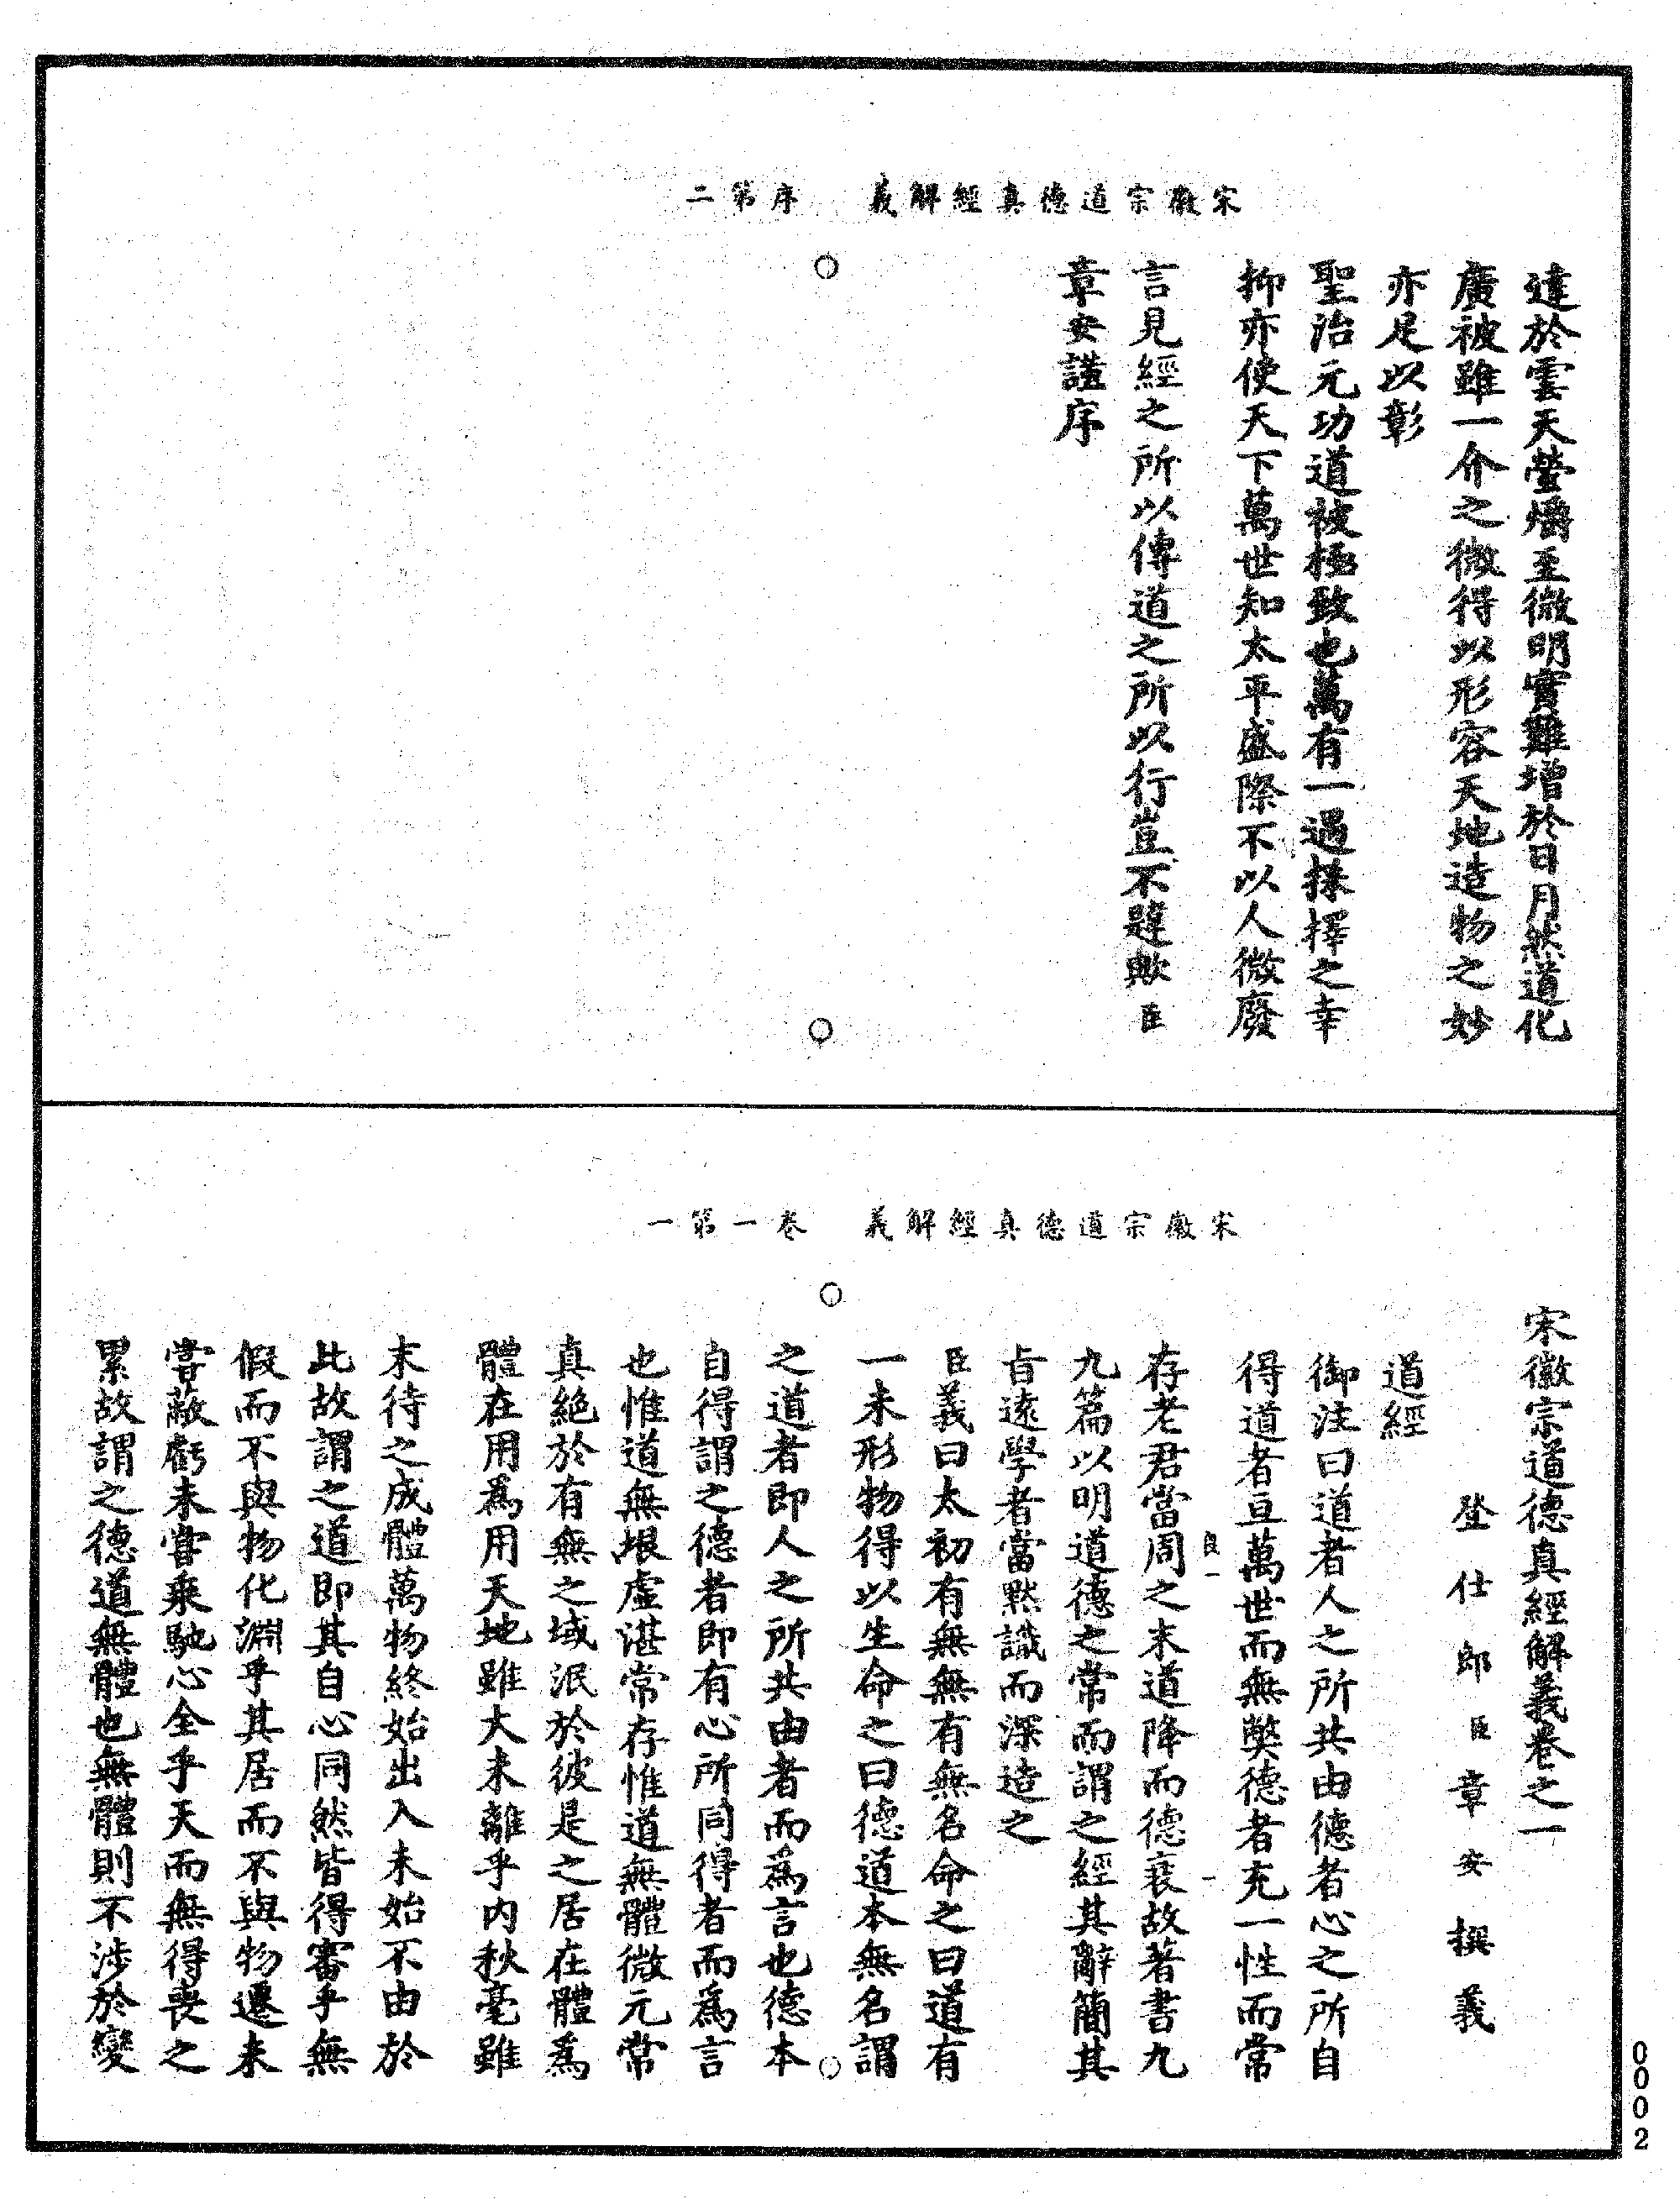 宋徽宗道德真經解義　序第二
達於雲天螢爝至微明實難增於日月然道化
廣被雖一介之微得以形容天地造物之妙
亦足以彰
聖治元功道被極致也萬有一過採擇之幸
抑亦使天下萬世知太平盛際不以人微廢
言見經之所以傳道之所以行豈不韙歟臣
章安謹序
宋徽宗道德真經解義　卷一第一
宋徽宗道德真經解義卷之一
登仕郎臣章安撰義
道經
御注曰道者人之所共由德者心之所自
得道者亘萬世而無弊德者充一性而常
良一
一
存老君當周之末道降而德衰故著書九
九篇以明道德之常而謂之經其辭簡其
旨遠學者當默識而深造之
臣義曰太初有無無有無名命之曰道有
一未形物得以生命之曰德道本無名謂
之道者即人之所共由者而爲言也德本
自得謂之德者即有心所同得者而爲言
也惟道無垠虛湛常存惟道無體微元常
真絕於有無之域泯於彼是之居在體爲
體在用爲用天地雖大未離乎內秋毫雖
末待之成體萬物終始出入未始不由於
此故謂之道即其自心同然皆得審乎無
假而不與物化淵乎其居而不與物遷未
嘗蔽虧未嘗乘馳心全乎天而無得喪之
累故謂之德道無體也無體則不涉於變
0002